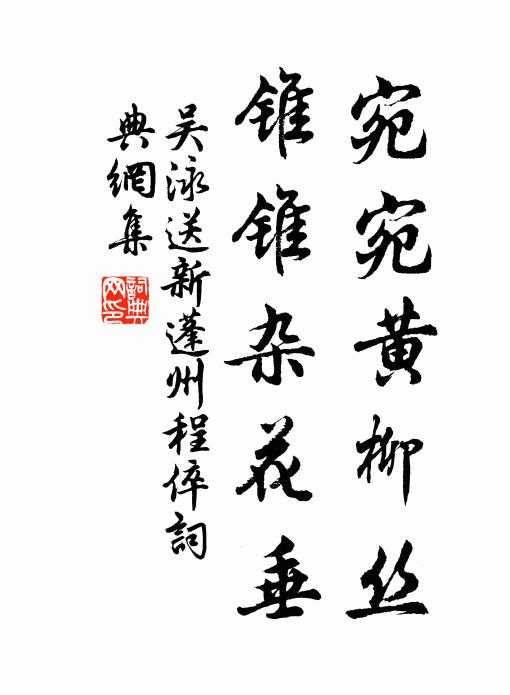 宛宛黄柳丝
锥锥杂花垂
吴泳送新蓬州程倅詞
典網集
詞典
网印